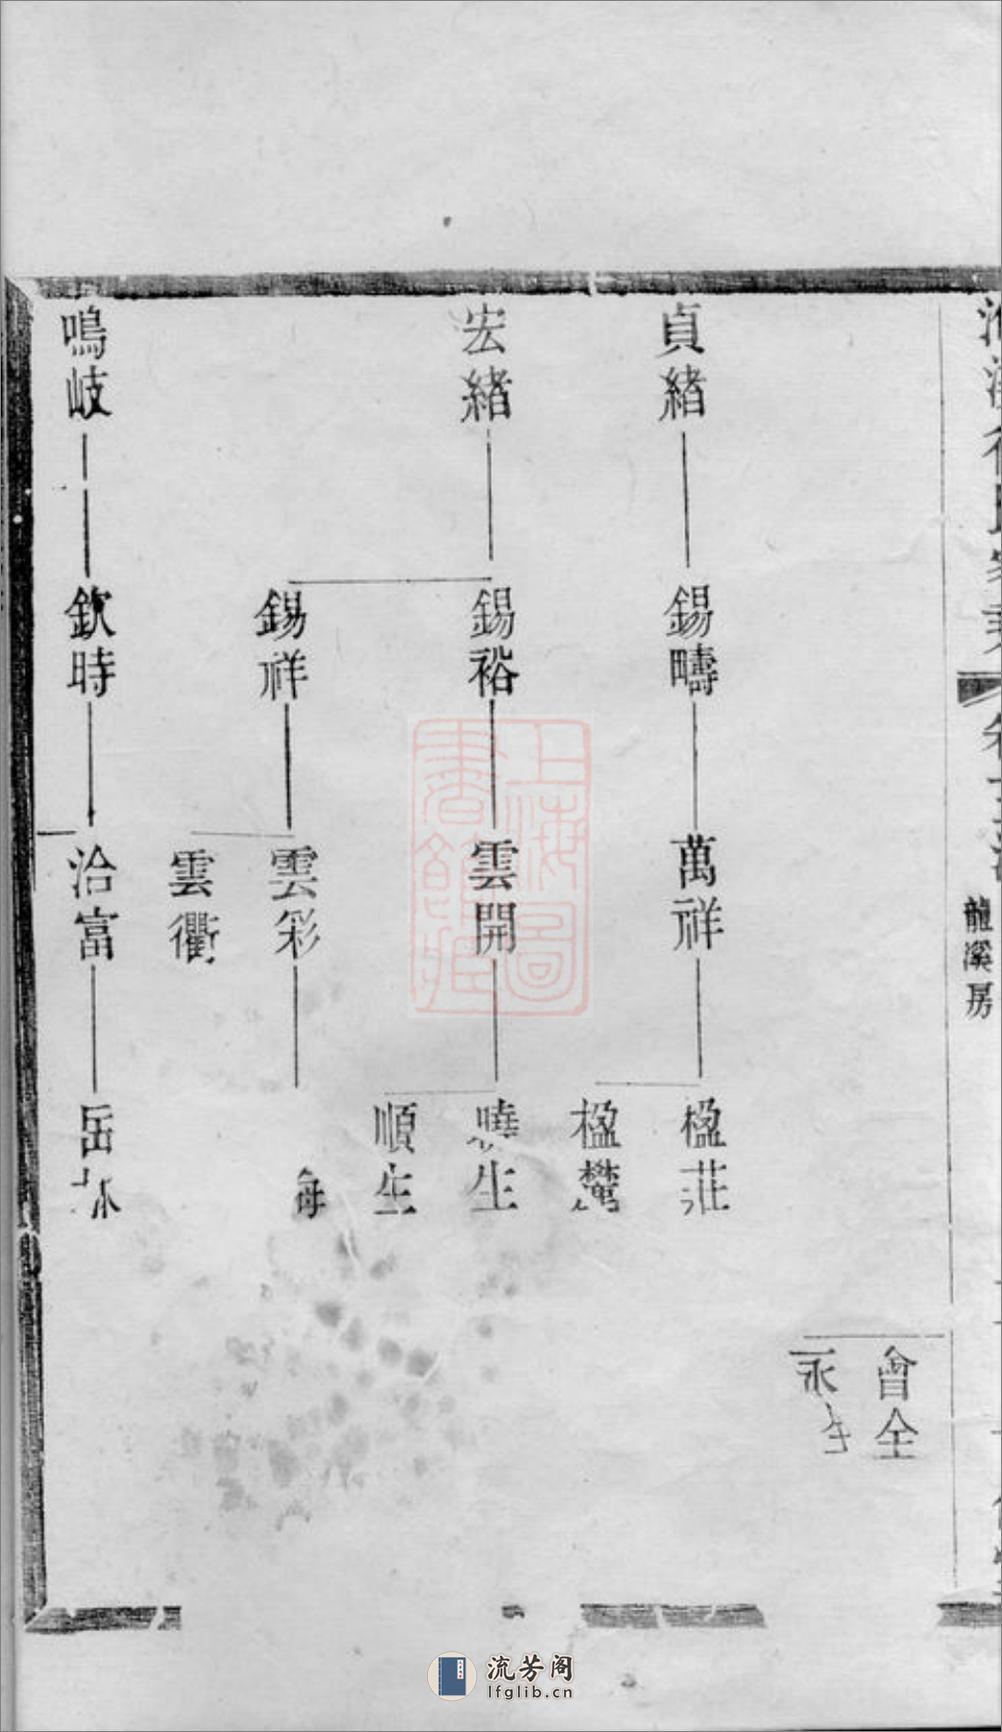 龍溪房
曾全
永生
貞緒
錫疇
萬祥
楹莊
楹
宏緒
錫裕
錫祥
雲開
生
順生
雲彩
雲衢
鳴岐
欽時
洽富
岳
上海圖書館藏
流芳阁
lfglib.cn